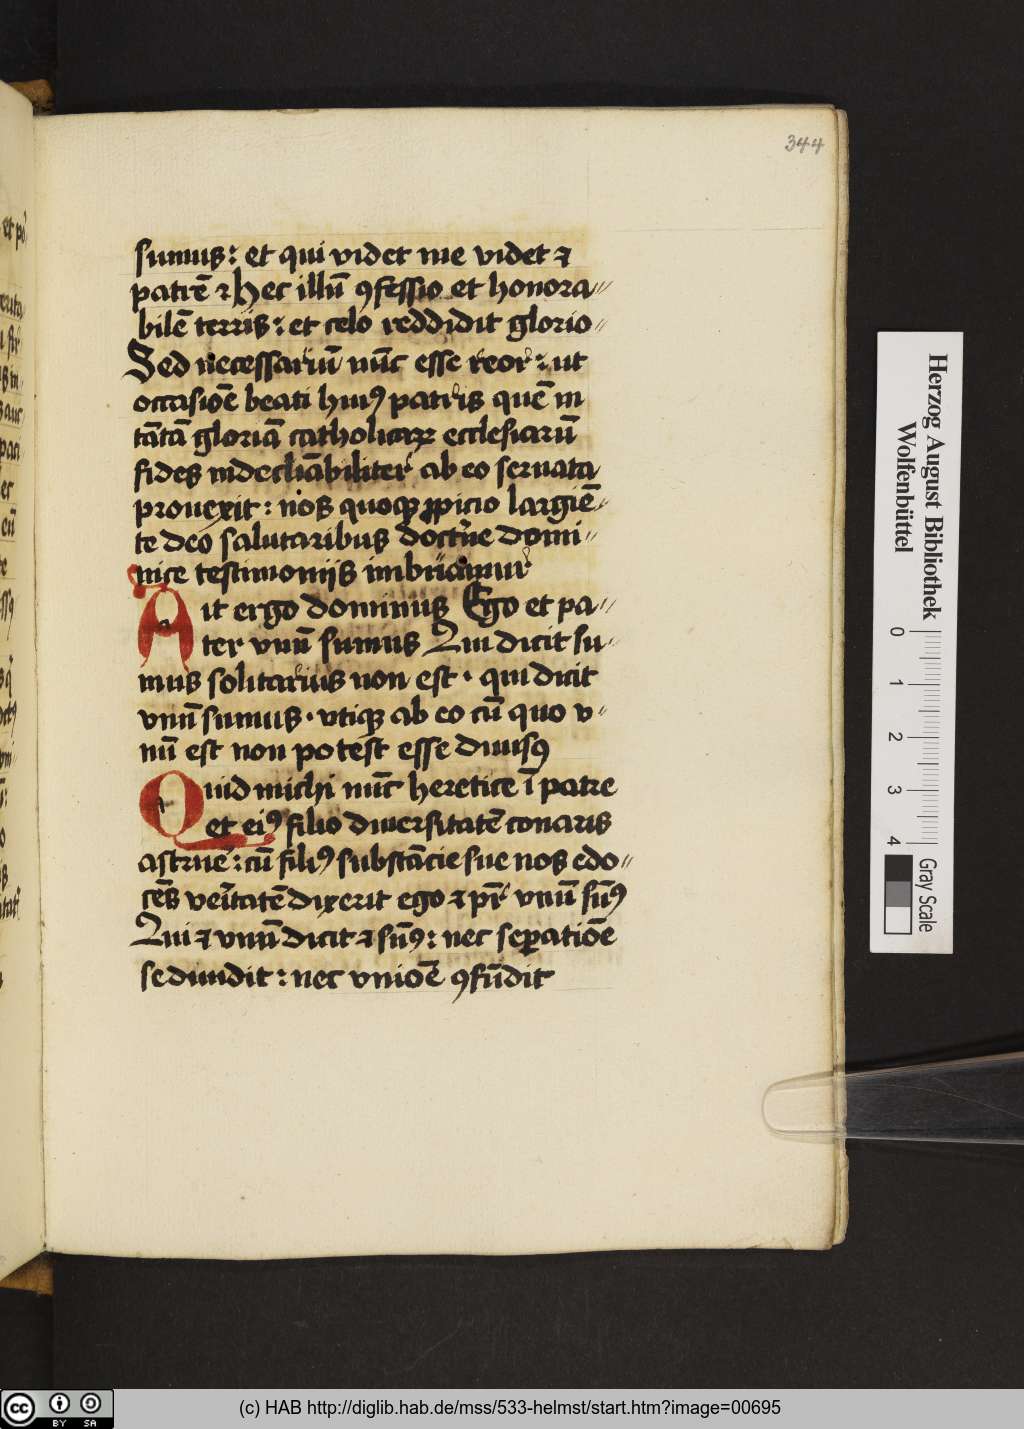 344
sumus : et qui videt me videt ⁊
patrē ⁊ hec illū ꝯfessio et honora〃
bilē terris : et celo reddidit glorio〃
Sed necessariū nūc esse reor : ut
occasiōe beati huiꝰ patris quē in
tātā gloriā catholicaꝝ ecclesiarū
fides indecliabiliter ab eo seruata
prouexit : nos quoqꝫ ꝓpicio largiē〃
te deo salutaribus doctrīe domi〃
nice testimoniis imbuamur
Ait ergo dominus Ego et pa〃
ter vnū sumus Qui dicit su〃
mus solitarius non est · qui dicit
vnū sumus · vtiqꝫ ab eo cū quo v〃
nū est non potest esse diuisꝰ
Quid michi nūc heretice ī patre
et eiꝰ filio diuersitatē conaris
astrue᷑ : cū filiꝰ substācie sue nos edo〃
cēs veritatē dixerit ego ⁊ pr̄ vnū sūꝰ
Qui ⁊ vnū dicit ⁊ sūꝰ : nec seꝑatiōe
se diuidit : nec vniōe ꝯfūdit
Herzog August Bibliothek
Wolfenbüttel
0 1 2 3 4
Gray Scale
cc BY SA
(c) HAB http://diglib.hab.de/mss/533-helmst/start.htm?image=00695